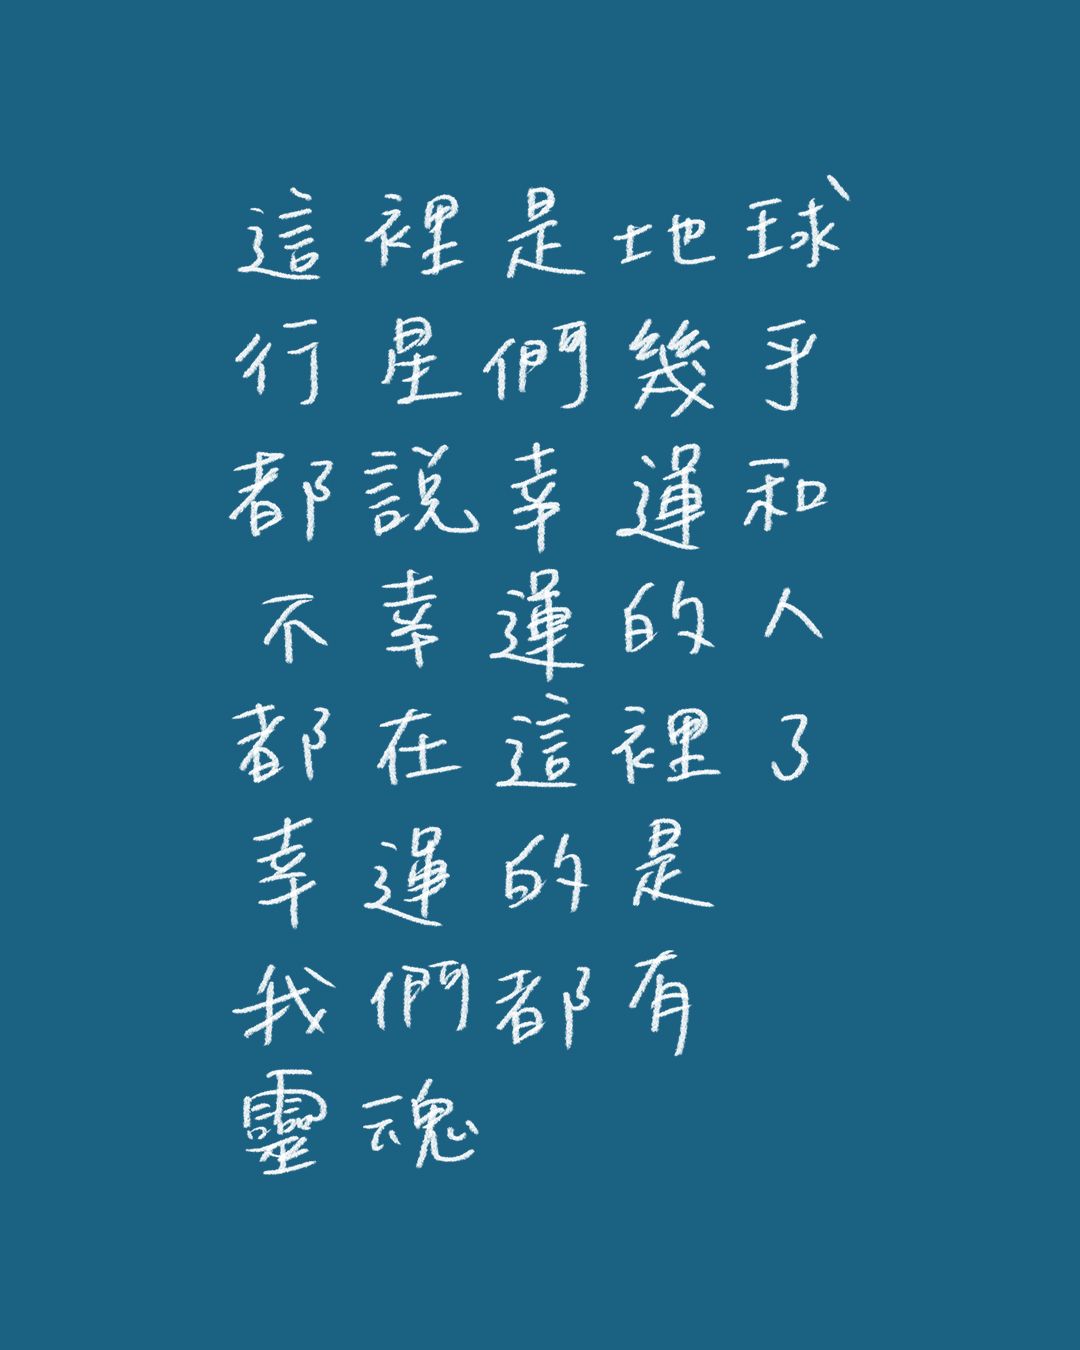 這裡是地球
行星們幾乎
都說幸運和
不幸運的人
都在這裡了
幸運的是
我們都有
靈魂